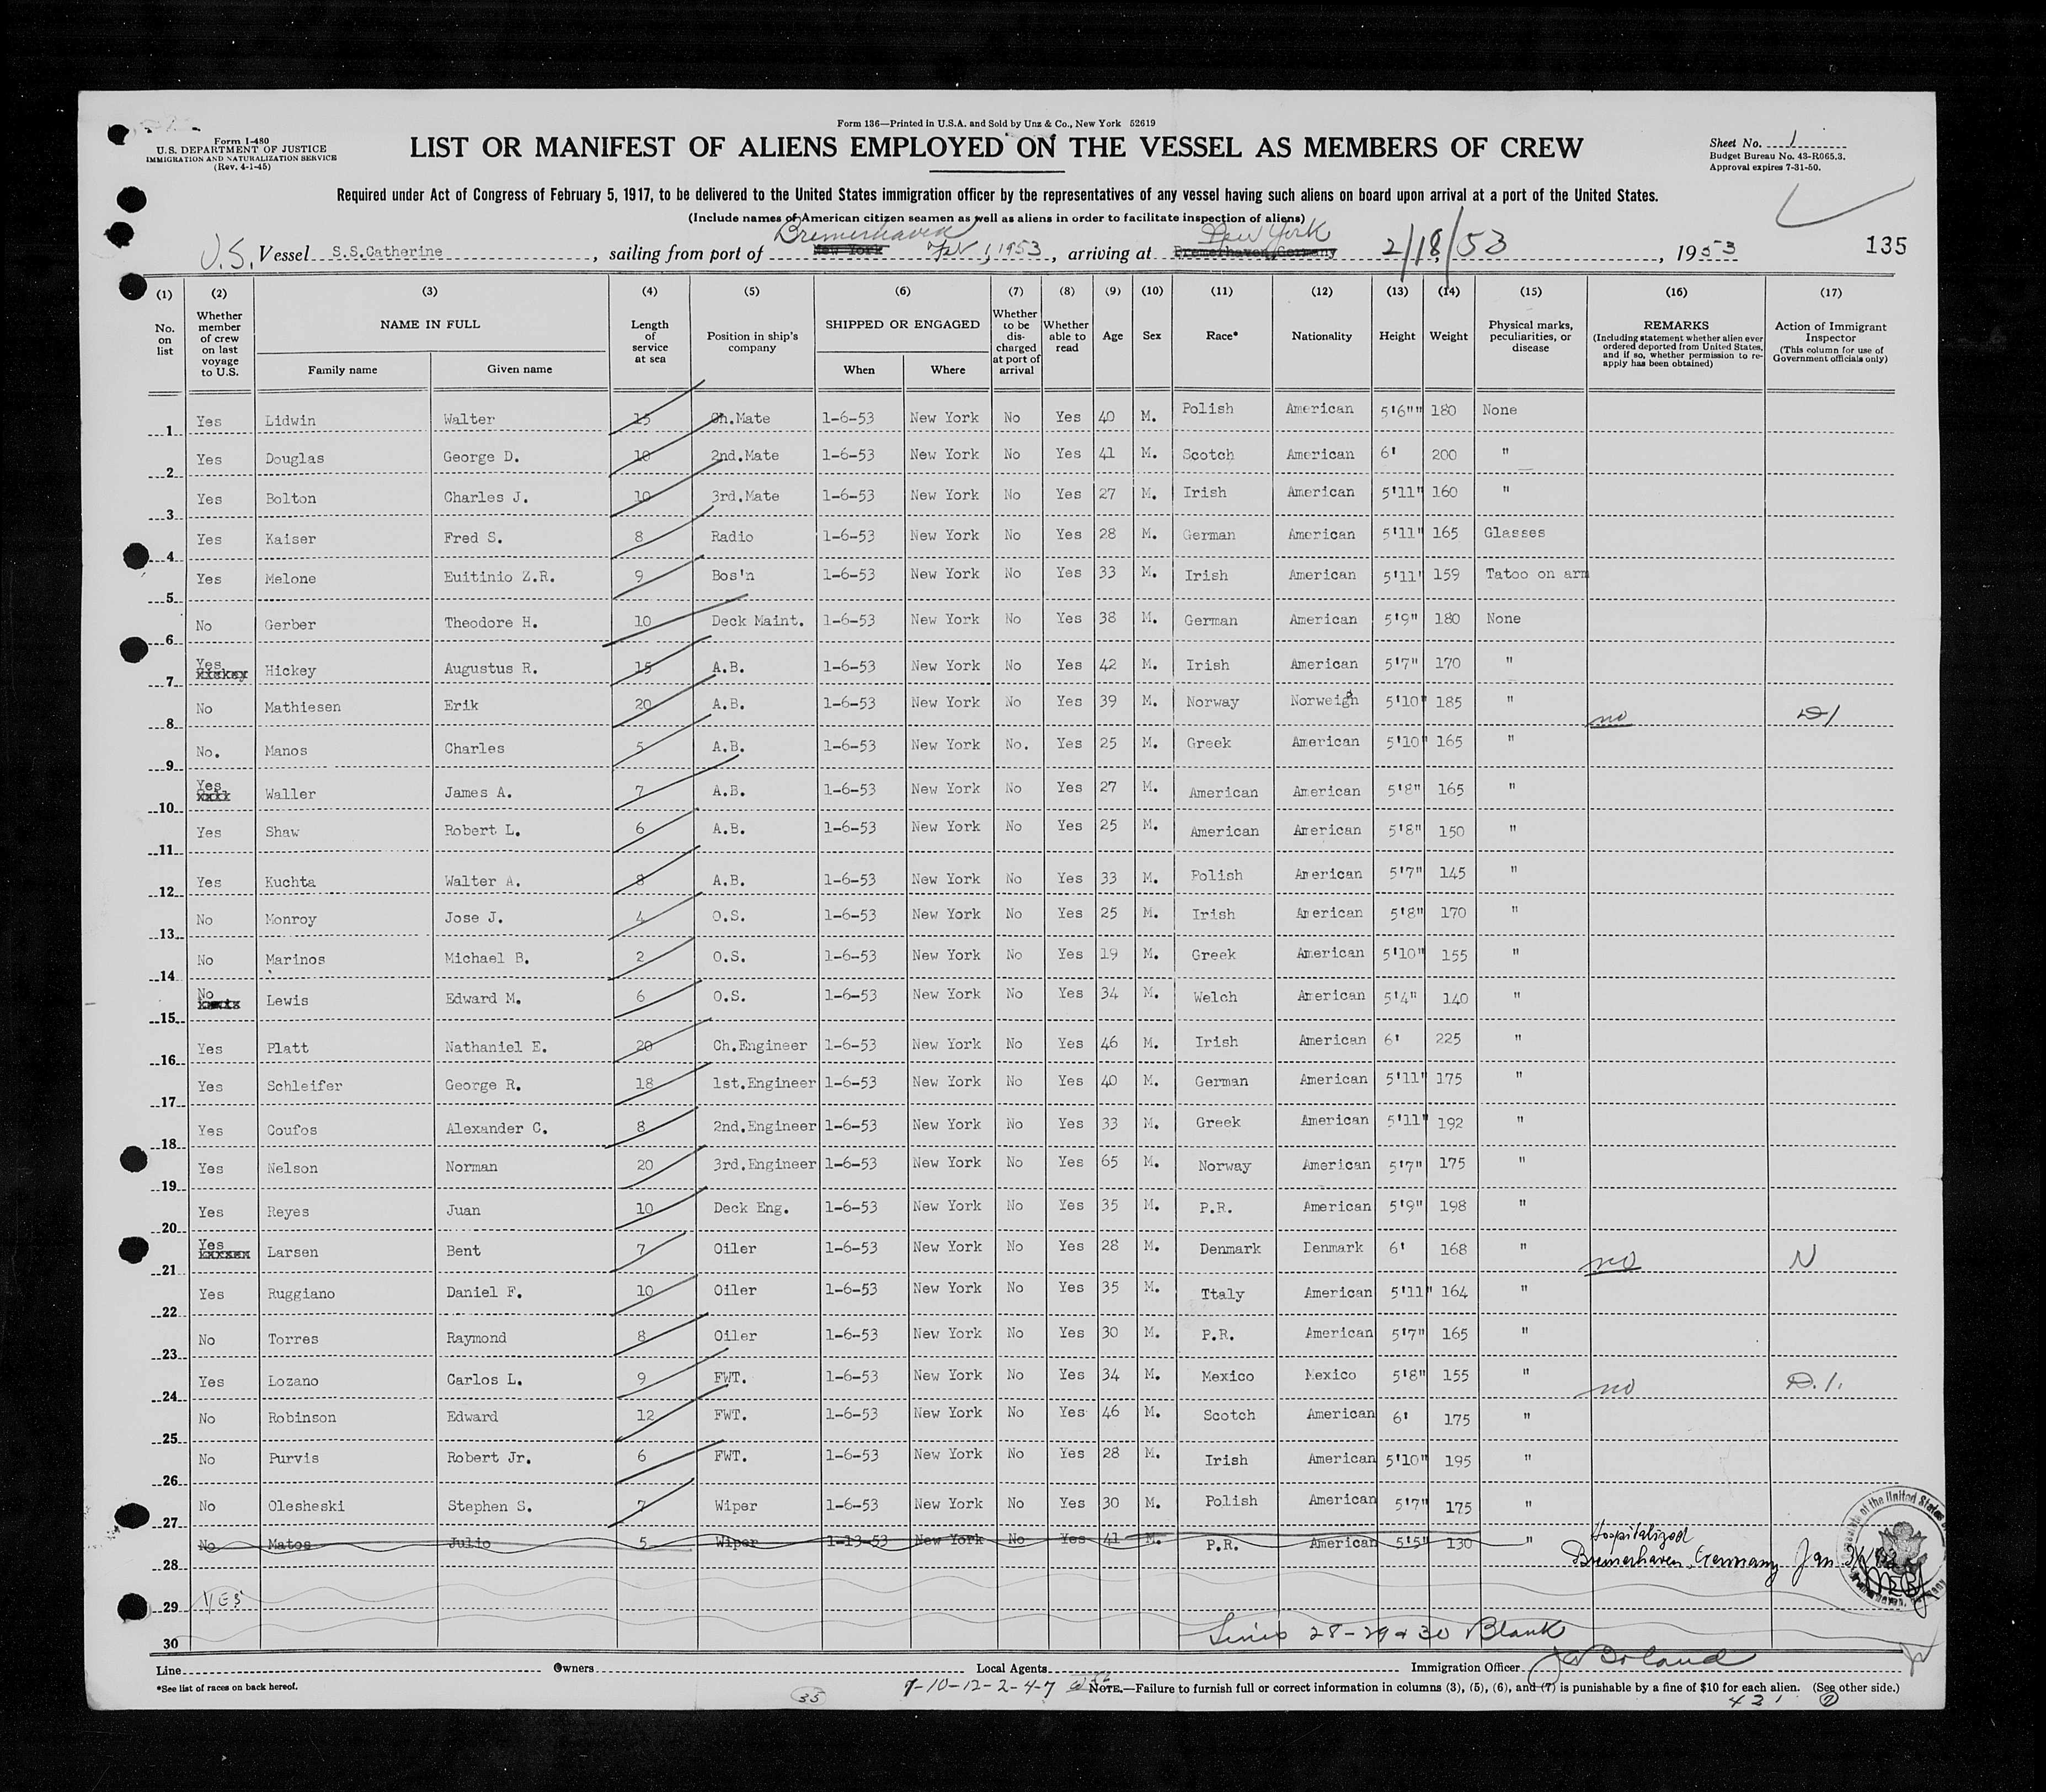 Form 136—Printed in U.S.A. and Sold by Unz & Co., New York 52619
Form I-480
U.S. DEPARTMENT OF JUSTICE
IMMIGRATION AND NATURALIZATION SERVICE
(Rev. 4-1-45)
LIST OR MANIFEST OF ALIENS EMPLOYED ON THE VESSEL AS MEMBERS OF CREW
Sheet No. 1
Budget Bureau No. 43-R065.3.
Approval expires 7-31-50.
Required under Act of Congress of February 5, 1917, to be delivered to the United States immigration officer by the representatives of any vessel having such aliens on board upon arrival at a port of the United States.
(Include names of American citizen seamen as well as aliens in order to facilitate inspection of aliens)
Bremerhaven New York
U.S. Vessel S.S.Catherine, sailing from port of New York Feb 1, 1953, arriving at Bremerhaven,Germany 2/18/53, 1953 135
(1) (2) (3) (4) (5) (6) (7) (8) (9) (10) (11) (12) (13) (14) (15) (16) (17)
No. on list Whether member of crew on last voyage to U.S. NAME IN FULL Family name Given name Length of service at sea Position in ship's company SHIPPED OR ENGAGED When Where Whether to be discharged at port of arrival Whether able to read Age Sex Race* Nationality Height Weight Physical marks, peculiarities, or disease REMARKS (Including statement whether alien ever ordered deported from United States, and if so, whether permission to re-apply has been obtained) Action of Immigrant Inspector (This column for use of Government officials only)
1 Yes Lidwin Walter 15 Ch.Mate 1-6-53 New York No Yes 40 M. Polish American 5'6"" 180 None
2 Yes Douglas George D. 10 2nd.Mate 1-6-53 New York No Yes 41 M. Scotch American 6' 200 "
3 Yes Bolton Charles J. 10 3rd.Mate 1-6-53 New York No Yes 27 M. Irish American 5'11" 160 "
4 Yes Kaiser Fred S. 8 Radio 1-6-53 New York No Yes 28 M. German American 5'11" 165 Glasses
5 Yes Melone Euitinio Z.R. 9 Bos'n 1-6-53 New York No Yes 33 M. Irish American 5'11' 159 Tatoo on arm
6 No Gerber Theodore H. 10 Deck Maint. 1-6-53 New York No Yes 38 M. German American 5'9" 180 None
7 Yes Hickey Augustus R. 15 A.B. 1-6-53 New York No Yes 42 M. Irish American 5'7" 170 "
8 No Mathiesen Erik 20 A.B. 1-6-53 New York No Yes 39 M. Norway Norweigh 5'10" 185 " no D1
9 No. Manos Charles 5 A.B. 1-6-53 New York No. Yes 25 M. Greek American 5'10" 165 "
10 Yes Waller James A. 7 A.B. 1-6-53 New York No Yes 27 M. American American 5'8" 165 "
11 Yes Shaw Robert L. 6 A.B. 1-6-53 New York No Yes 25 M. American American 5'8" 150 "
12 Yes Kuchta Walter A. 8 A.B. 1-6-53 New York No Yes 33 M. Polish American 5'7" 145 "
13 No Monroy Jose J. 4 O.S. 1-6-53 New York No Yes 25 M. Irish American 5'8" 170 "
14 No Marinos Michael B. 2 O.S. 1-6-53 New York No Yes 19 M. Greek American 5'10" 155 "
15 No Lewis Edward M. 6 O.S. 1-6-53 New York No Yes 34 M. Welch American 5'4" 140 "
16 Yes Platt Nathaniel E. 20 Ch.Engineer 1-6-53 New York No Yes 46 M. Irish American 6' 225 "
17 Yes Schleifer George R. 18 1st.Engineer 1-6-53 New York No Yes 40 M. German American 5'11" 175 "
18 Yes Coufos Alexander C. 8 2nd.Engineer 1-6-53 New York No Yes 33 M. Greek American 5'11" 192 "
19 Yes Nelson Norman 20 3rd.Engineer 1-6-53 New York No Yes 65 M. Norway American 5'7" 175 "
20 Yes Reyes Juan 10 Deck Eng. 1-6-53 New York No Yes 35 M. P.R. American 5'9" 198 "
21 Yes Larsen Bent 7 Oiler 1-6-53 New York No Yes 28 M. Denmark Denmark 6' 168 " no N
22 Yes Ruggiano Daniel F. 10 Oiler 1-6-53 New York No Yes 35 M. Ttaly American 5'11" 164 "
23 No Torres Raymond 8 Oiler 1-6-53 New York No Yes 30 M. P.R. American 5'7" 165 "
24 Yes Lozano Carlos L. 9 FWT. 1-6-53 New York No Yes 34 M. Mexico Mexico 5'8" 155 " no D.1.
25 No Robinson Edward 12 FWT. 1-6-53 New York No Yes 46 M. Scotch American 6' 175 "
26 No Purvis Robert Jr. 6 FWT. 1-6-53 New York No Yes 28 M. Irish American 5'10" 195 "
27 No Olesheski Stephen S. 7 Wiper 1-6-53 New York No Yes 30 M. Polish American 5'7" 175 "
28 No Matos Julio 5 Wiper 1-13-53 New York No Yes 41 M. P.R. American 5'5" 130 " Hospitalized Bremerhaven, Germany Jan
29 YES
30 Lines 28-29 & 30 Blank
Line Owners Local Agents Immigration Officer Boland
*See list of races on back hereof.
35
7-10-12-2-4-7
NOTE.—Failure to furnish full or correct information in columns (3), (5), (6), and (7) is punishable by a fine of $10 for each alien. (See other side.)
421 2